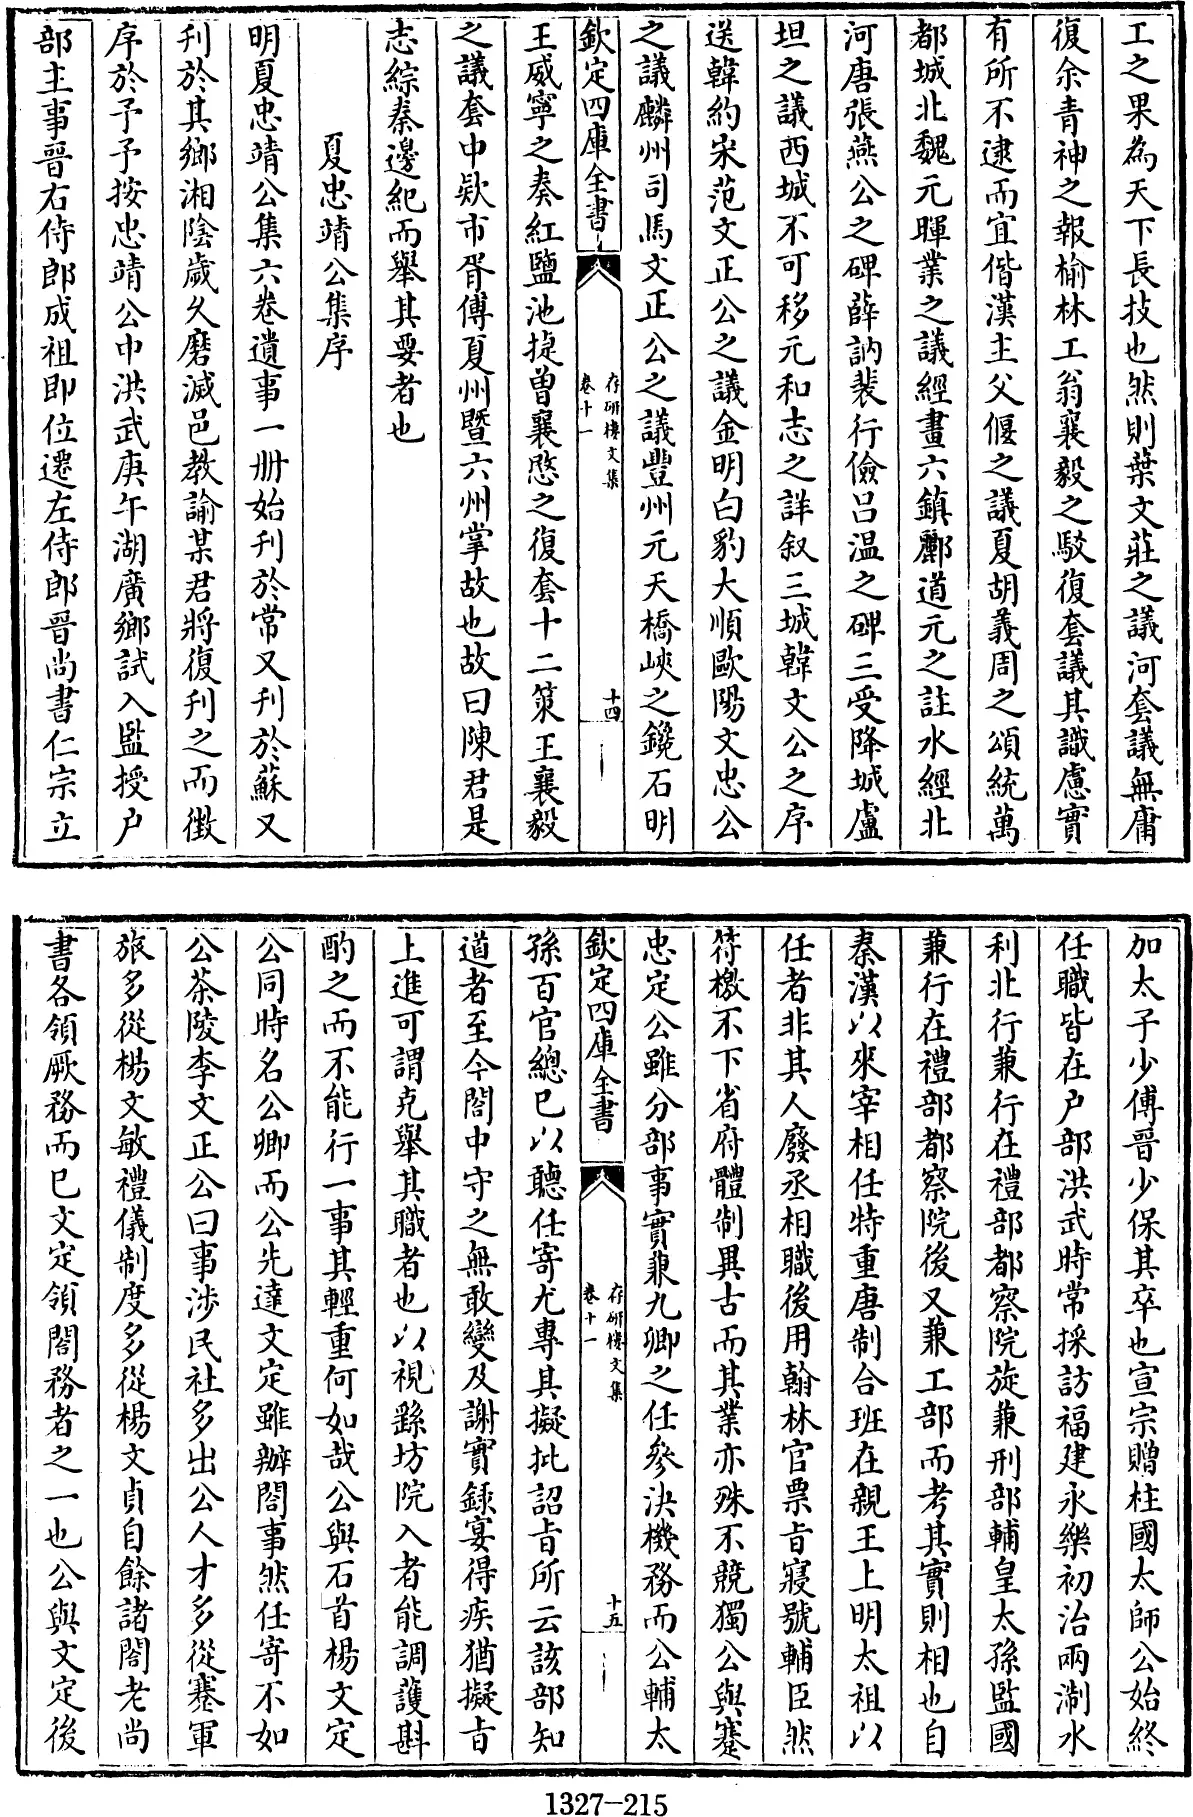 工之果為天下長技也然則葉文莊之議河套議無庸
復余青神之報榆林工翁襄毅之駁復套議其識慮實
有所不逮而宜偕漢主父偃之議夏胡義周之頌統萬
都城北魏元暉業之議經畫六鎮酈道元之註水經北
河唐張燕公之碑薛訥裴行儉呂温之碑三受降城盧
坦之議西城不可移元和志之詳叙三城韓文公之序
送韓約宋范文正公之議金明白豹大順歐陽文忠公
之議麟州司馬文正公之議豐州元天橋峽之鑱石明
欽定四庫全書
存研樓文集
卷十一
十四
王威寧之奏紅鹽池捷曾襄愍之復套十二策王襄毅
之議套中欵市胥傅夏州暨六州掌故也故曰陳君是
志綜秦邊紀而舉其要者也
夏忠靖公集序
明夏忠靖公集六卷遺事一册始刊於常又刊於蘇又
刊於其鄉湘陰歲久磨滅邑教諭某君將復刊之而徵
序於予予按忠靖公中洪武庚午湖廣鄉試入監授户
部主事晉右侍郎成祖即位遷左侍郎晉尚書仁宗立
加太子少傅晉少保其卒也宣宗贈柱國太師公始終
任職皆在户部洪武時常採訪福建永樂初治兩淛水
利北行兼行在禮部都察院旋兼刑部輔皇太孫監國
兼行在禮部都察院後又兼工部而考其實則相也自
秦漢以來宰相任特重唐制合班在親王上明太祖以
任者非其人廢丞相職後用翰林官票旨寢號輔臣然
符檄不下省府體制異古而其業亦殊不競獨公與蹇
忠定公雖分部事實兼九卿之任參決機務而公輔太
欽定四庫全書
存研樓文集
卷十一
十五
孫百官總已以聽任寄尤專其擬批詔旨所云該部知
道者至今閣中守之無敢變及謝實錄宴得疾猶擬旨
上進可謂克舉其職者也以視繇坊院入者能調護斟
酌之而不能行一事其輕重何如哉公與石首楊文定
公同時名公卿而公先達文定雖辦閣事然任寄不如
公茶陵李文正公曰事涉民社多出公人才多從蹇軍
旅多從楊文敏禮儀制度多從楊文貞自餘諸閣老尚
書各領厥務而已文定領閣務者之一也公與文定後
1327-215